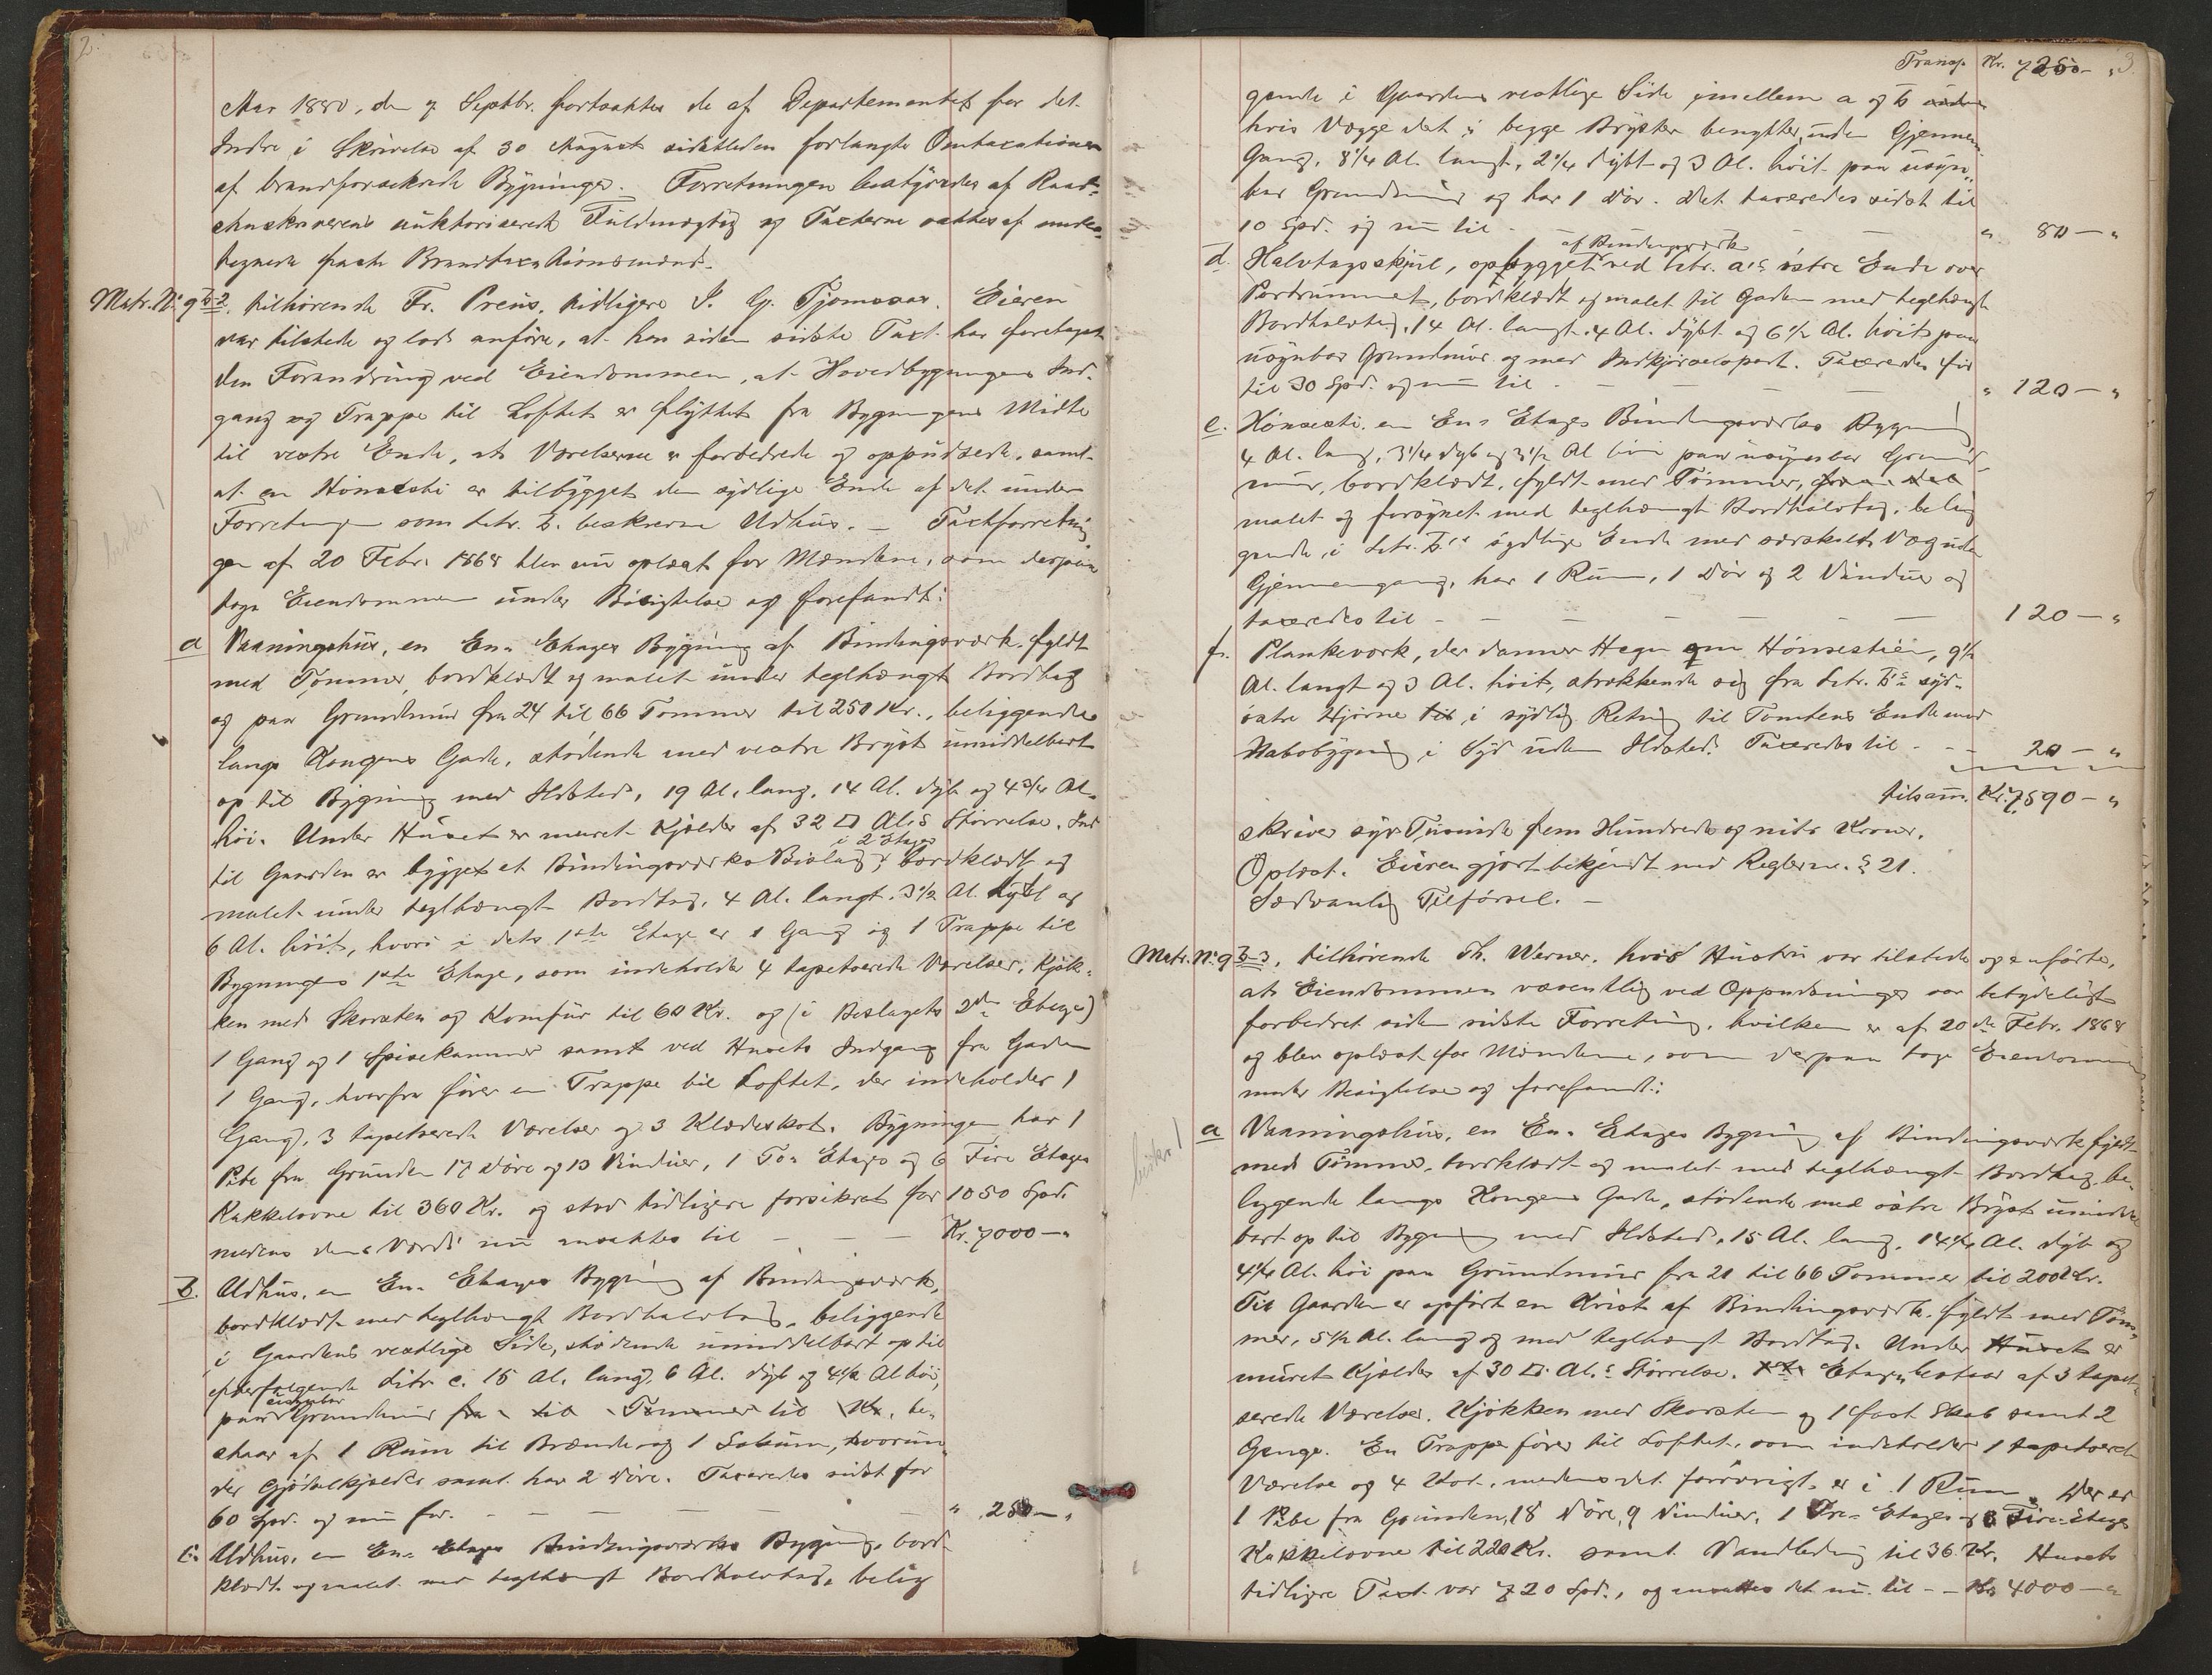 2.
Aar 1880, den 7 Septbr. fortsattes de af Departementet for det
Indre i Skrivelse af 30 August sidstleden forlangte Omtaxationer
af brandforsikrede Bygninger. Forretningen bestyredes af Raad-
stueskriverens auktoriserede Fuldmægtig og Taxterne sattes af under-
tegnede faste Brandtaxationsmænd.
Matr. No 9 b-2, tilhørende Fr. Preus, tidligere S. G. Tjomsaas. Eieren
var tilstede og lod anføre, at han siden sidste Taxt har foretaget
den Forandring ved Eiendommen, at Hovedbygningens Ind-
gang og Trappe til Loftet er flyttet fra Bygningens Midte
til vestre Ende, at Værelserne er forbedrede og oppudsede, samt
at en Hønsesti er tilbygget den sydlige Ende af det under
Forretningen som Litr. b. beskrevne Udhus. – Taxtforretnin
gen af 20 Febr. 1868 blev nu oplæst for Mændene, som derpaa
toge Eiendommen under Besigtelse og forefandt:
a Vaaningshus, en En-Etages Bygning af Bindingsværk fyldt
med Tømmer, bordklædt og malet under teglhængt Bordtag
og paa Grundmur fra 24 til 66 Tommer til 250 Kr., beliggende
langs Kongens Gade, stødende med vestre Bryst umiddelbart
op til Bygning med Ildsted, 19 Al. lang, 14 Al. dyb og 4 3/4 Al.
høi. Under Huset er muret Kjælder af 32 □ Al.s Størrelse. Ind
i 2 Etager
til Gaarden er bygget et Bindingsværks Bislag, bordklædt og
malet under teglhængt Bordtag, 4 Al. langt, 3 1/2 Al. dybt og
6 Al. høit, hvori i dets 1ste Etage er 1 Gang og 1 Trappe til
Bygningens 1ste Etage, som indeholder 4 tapetserede Værelser, Kjøk-
ken med Skorsten og Komfur til 60 Kr. og (i Bislagets 2den Etage)
1 Gang og 1 Spisekammer samt ved Husets Indgang fra Gaden
1 Gang, hvorfra fører en Trappe til Loftet, der indeholder 1
Gang, 3 tapetserede Værelser og 3 Klædeskot. Bygningen har 1
Pibe fra Grunden 17 Døre og 13 Vinduer, 1 To-Etages og 6 Fire Etages
Kakkelovne til 360 Kr. og stod tidligere forsikret for 1050 Spd.
medens dens Værdi nu ansattes til – – – Kr. 7000 – "
b. Udhus, en En-Etages Bygning af Bindingsværk,
bordklædt med teglhængt Bordhalvtag, beliggende
i Gaardens vestlige Side, stødende umiddelbart op til
efterfølgende Litr. c. 15 Al. lang, 6 Al. dyb og 4 1/2 Al høi,
usynbar
paa Grundmur fra til Tommer til Kr., be-
staar af 1 Rum til Brænde og 1 Lokum, hvorun-
der Gjødselkjælder samt har 2 Døre. Taxeredes sidst for
60 Spd. og nu for. – – – – " 250 – "
c. Udhus, en En-Etages Bindingsværks Bygning, bord-
klædt og malet med teglhængt Bordhalvtag, belig
Transp. Kr. 7250 – " 3.
gende i Gaardens vestlige Side imellem a og b
hvis Vægge det i begge Bryster benytter, uden Gjennem-
Gang, 8 1/4 Al. langt, 2 1/4 dybt og 3 Al. høit paa usyn-
bar Grundmur og har 1 Dør. Det taxeredes sidst til
10 Spd. og nu til – – – " 80 – "
af Bindingsværk
d. Halvtagsskjul, opbygget ved Litr. a's østre Ende over
Portrummet, bordklædt og malet til Gaden med teglhængt
Bordhalvtag, 14 Al. langt, 4 Al. dybt og 6 1/2 Al. høit paa
usynbar Grundmur og med Indkjørselsport. Taxeredes før
til 30 Spd. og nu til – – – – " 120 – "
e. Hønsesti, en En-Etages Bindingsværks Bygning
4 Al. lang, 3 1/4 dyb og 3 1/2 Al høi paa usynbar Grund-
mur, bordklædt, fyldt med Tømmer,
malet og forsynet med teglhængt Bordhalvtag, belig
gende i Litr. b's sydlige Ende med særskilt Væg uden
Gjennemgang, har 1 Rum, 1 Dør og 2 Vinduer og
taxeredes til – – – – – 120 – "
f. Plankeværk, der danner Hegn om Hønsestien, 9 1/2
Al. langt og 3 Al. høit, strækkende sig fra Litr. b's syd-
østre Hjørne til, i sydlig Retning til Tomtens Ende mod
Nabobygning i Syd uden Ildsted. Taxeredes til – – 20 – "
tilsam. Kr. 7590 – "
skriver syv Tusinde fem Hundrede og niti Kroner.
Oplæst. Eieren gjort bekjendt med Reglerne § 21.
Sædvanlig Tilførsel. –
Matr. No 9 b-3, tilhørende Th. Werner, hvis Hustru var tilstede og anførte,
at Eiendommen væsentlig ved Oppudsninger var betydeligt
forbedret siden sidste Forretning, hvilken er af 20de Febr. 1868
og blev oplæst for Mændene, som derpaa tog Eiendommen
under Besigtelse og forefandt:
a Vaaningshus, en En-Etages Bygning af Bindingsværk fyldt
med Tømmer, bordklædt og malet med teglhængt Bordtag, be-
liggende langs Kongens Gade, stødende med østre Bryst umiddel
bart op til Bygning med Ildsted, 15 Al. lang, 14 1/2 Al. dyb og
4 1/4 Al. høi paa Grundmur fra 21 til 66 Tommer til 200 Kr.
Til Gaarden er opført en Kvist af Bindingsværk, fyldt med Tøm-
mer, 5 1/2 Al. lang og med teglhængt Bordtag. Under Huset er
muret Kjælder af 30 □ Al.s Størrelse. 1ste Etage bestaar af 3 tapet-
serede Værelser, Kjøkken med Skorsten og 1 fast Skab samt 2
Gange. En Trappe fører til Loftet, som indeholder 1 tapetseret
Værelse og 4 Kot, medens det forøvrigt er i 1 Rum. Der er
1 Pibe fra Grunden, 18 Døre, 9 Vinduer, 1 Tre-Etages og 3 Fire-Etages
Kakkelovne til 220 Kr. samt Vandledning til 36 Kr. Husets
tidligere Taxt var 720 Spd., og ansattes det nu til – – Kr. 4000 – "